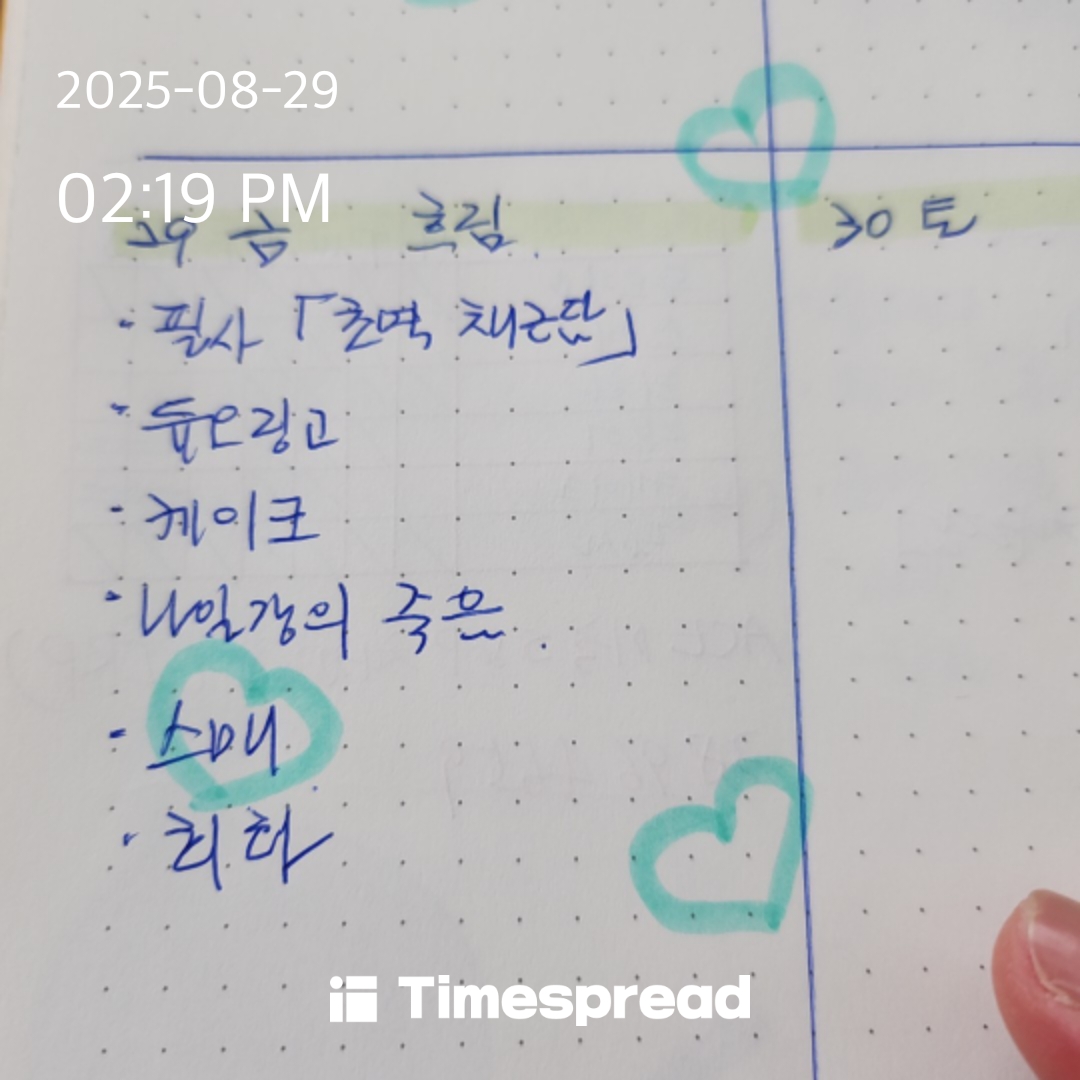 2025-08-29
02:19 PM
29 금 흐림 30 토
· 필사 「초역 채근담」
· 듀오링고
· 케이크
· 나일강의 죽음.
· 스매
· 회화
Timespread